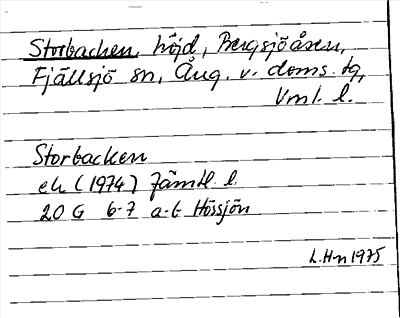 Storbacken, höjd, Bergsjöåsen,
Fjällsjö sn, Ång. v. doms. tg,
Vnl. l.
Storbacken
ek (1974) Jämtl. l.
20 G 6-7 a-b Hössjön
L.H-n 1975